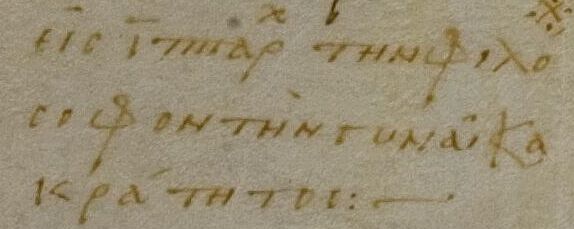 εἰς ἱππαρχ τὴν φιλο
σοφον τὴν γυναῖκα
κράτητος:—